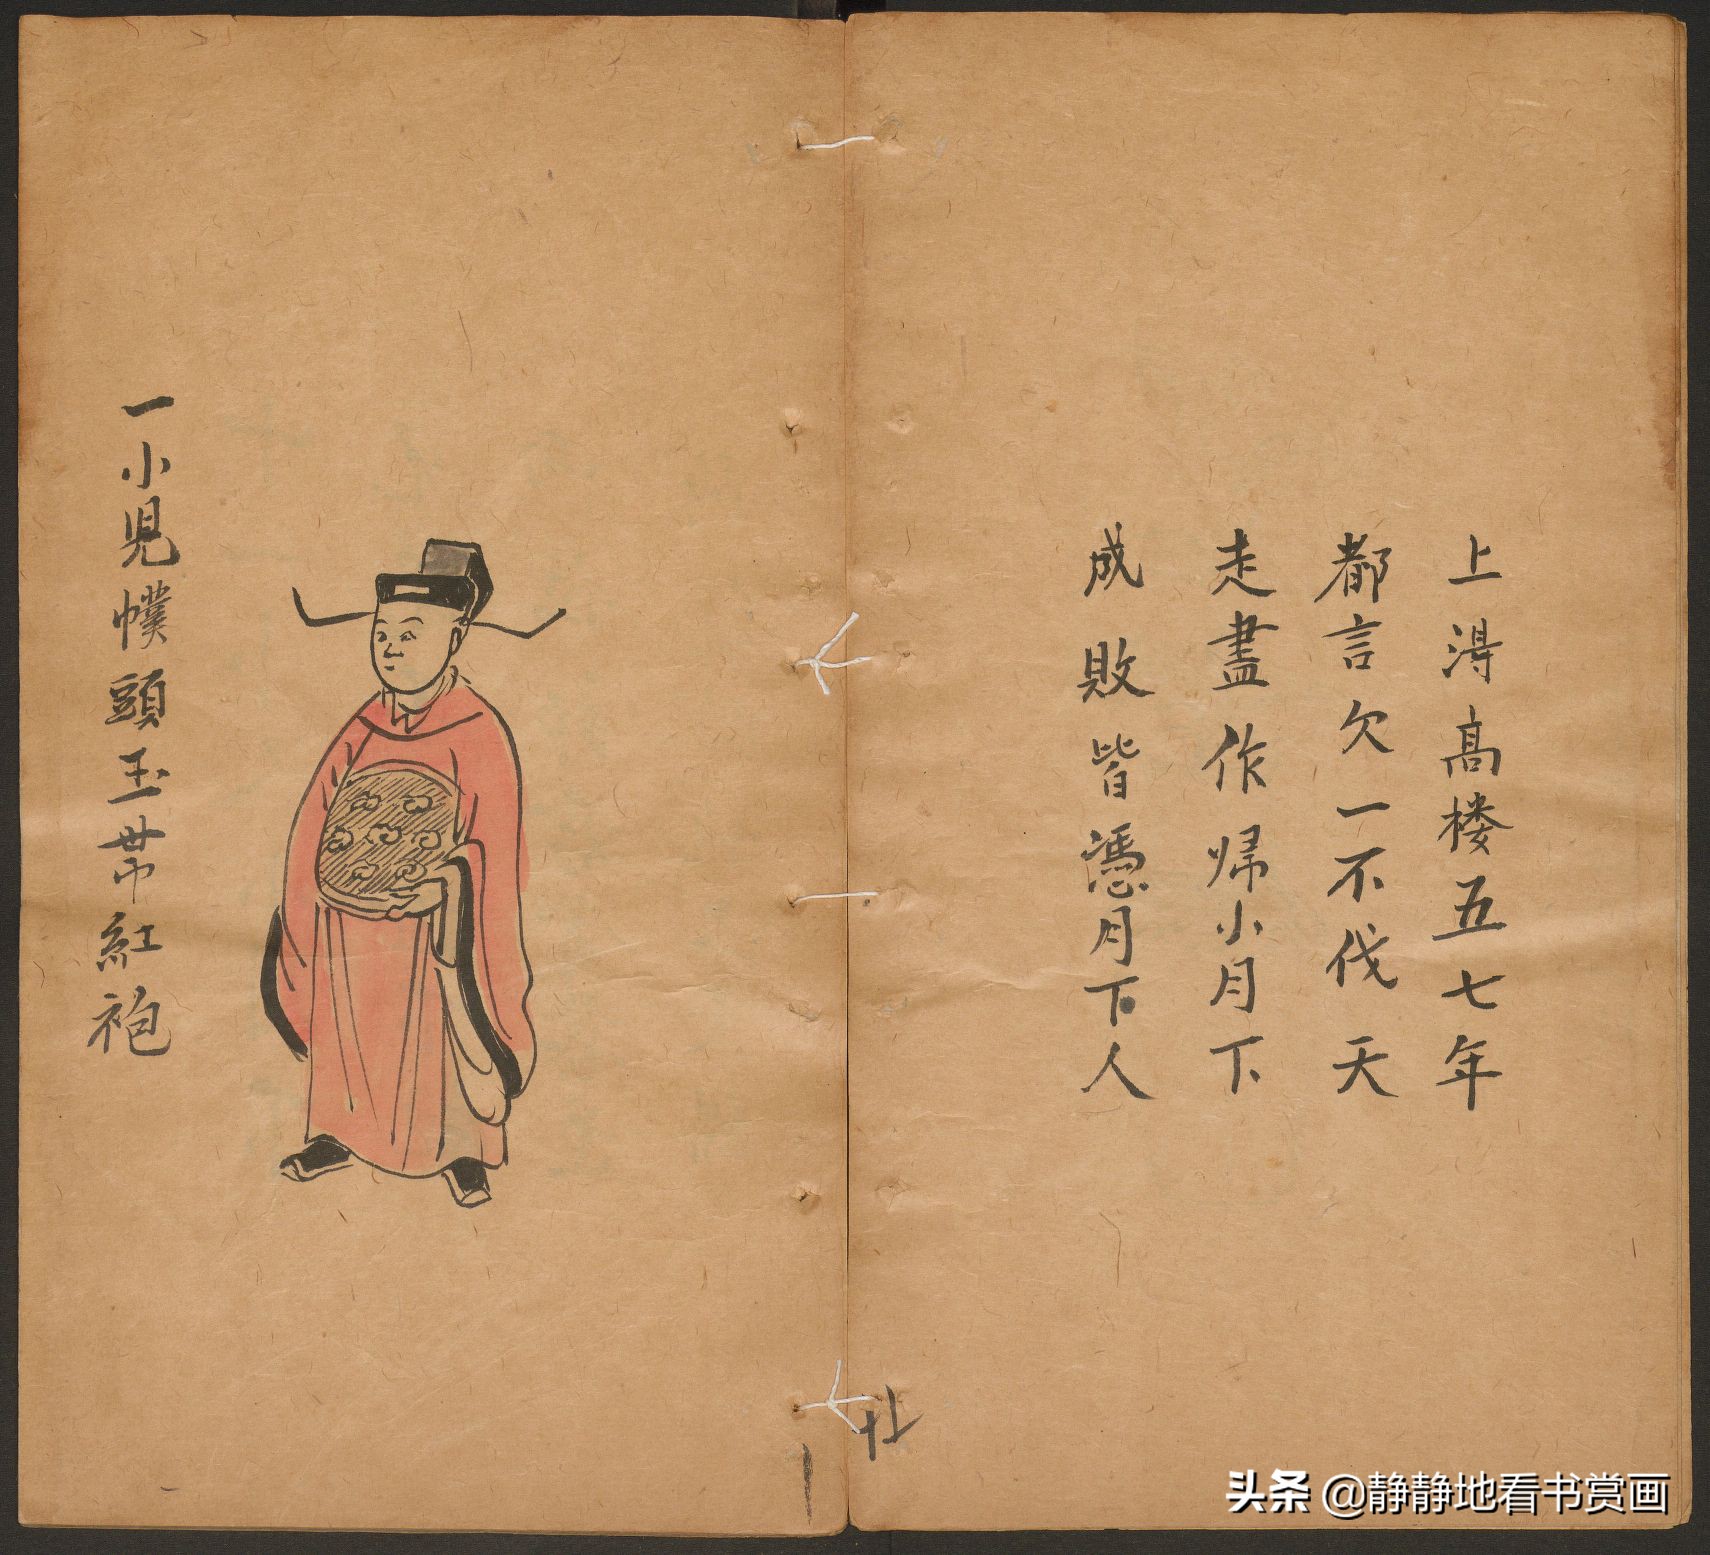 上淂高楼五七年
都言欠一不伐天
走盡作帰小月下
成敗皆憑月下人
一小児幞頭玉帯紅袍
头条 @静静地看书赏画